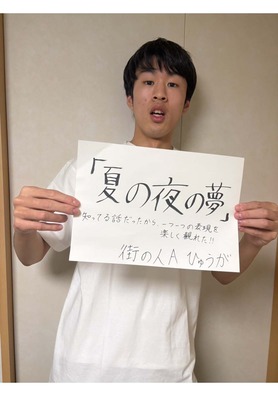 「夏の夜の夢」
知ってる話だったから、一つ一つの表現を
楽しく観れた!!
街の人A ひゅうが